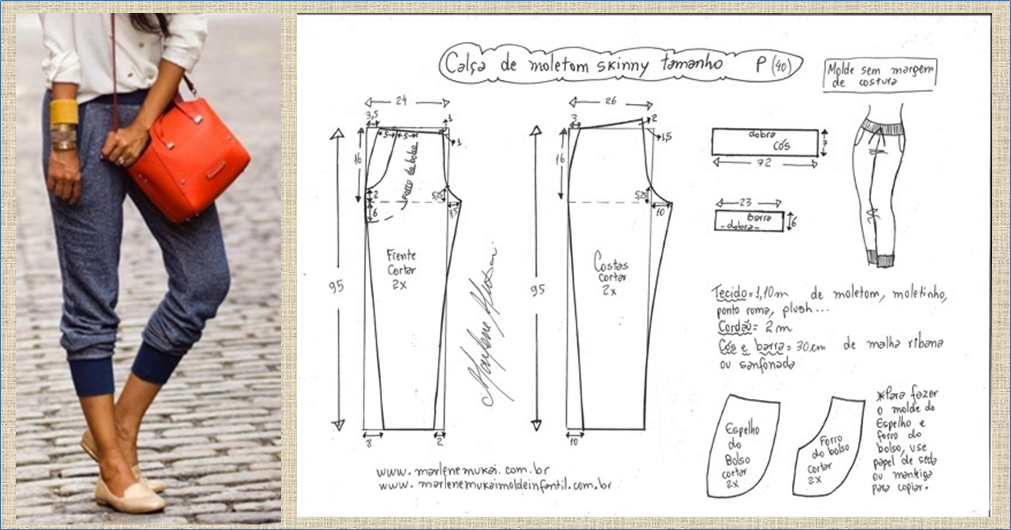 Calça de moletom skinny tamanho P (40)
Molde sem margem
de costura
24
3,5
5
5
1
1
16
2
6
5,25
3,5
saco do bolso
Frente
Cortar
2x
95
8
2
26
3
2
1,5
16
5,25
10
Costas
cortar
2x
95
10
dobra
cós
7
72
23
barra
-dobra-
6
Tecido=1,10m de moletom, moletinho,
ponto roma, plush...
Cordão= 2m
Cós e barra= 30cm de malha ribana
ou sanfonada
Espelho
do
Bolso
cortar
2x
Forro
do bolso
cortar
2x
*Para fazer
o molde do
Espelho e
forro do
bolso, use
papel de seda
ou manteiga
para copiar.
Marlene Mukai
www.marlenemukai.com.br
www.marlenemukaimoldeinfantil.com.br